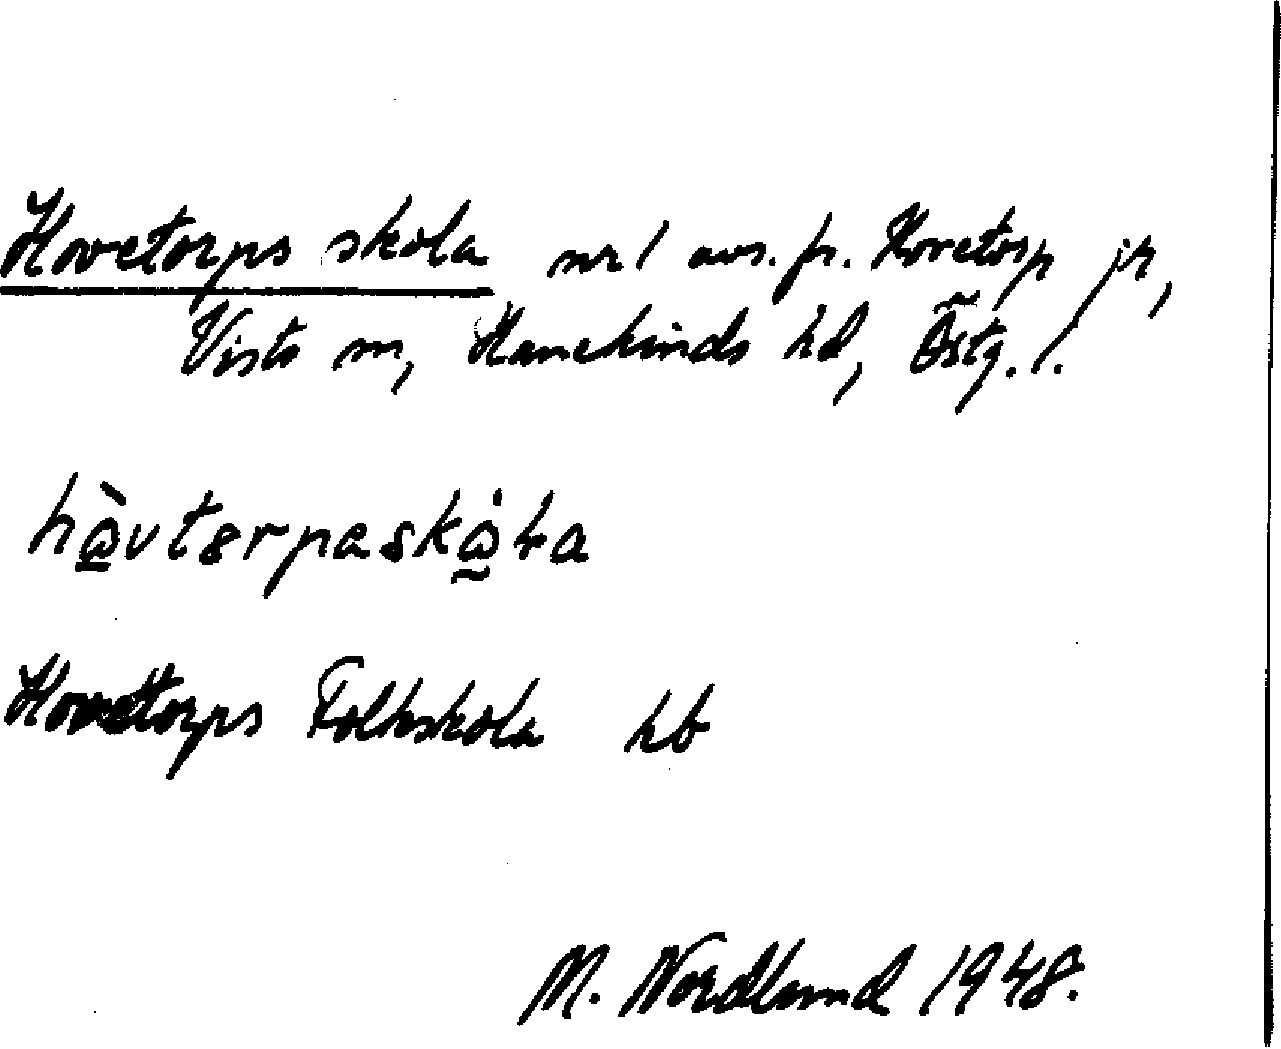 Hovetorps skola nr 1 avs. fr. Hovetorp jh,
Vists sn, Hanekinds hd, Östg. l.
hå̀vtɵrpaskå̇ɫa
Hovetorps Folkskola hb
M. Nordlund 1948.